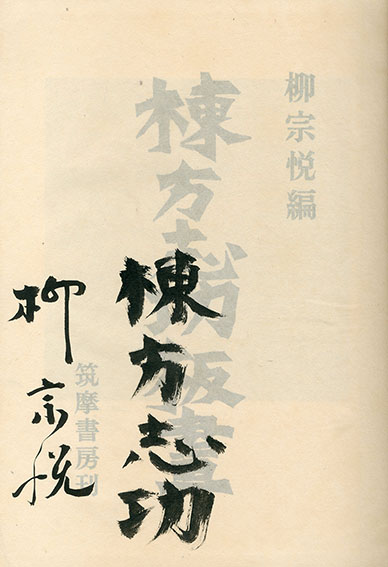 柳宗悦編
棟方志功版畫
筑摩書房刊
棟方志功
柳宗悦